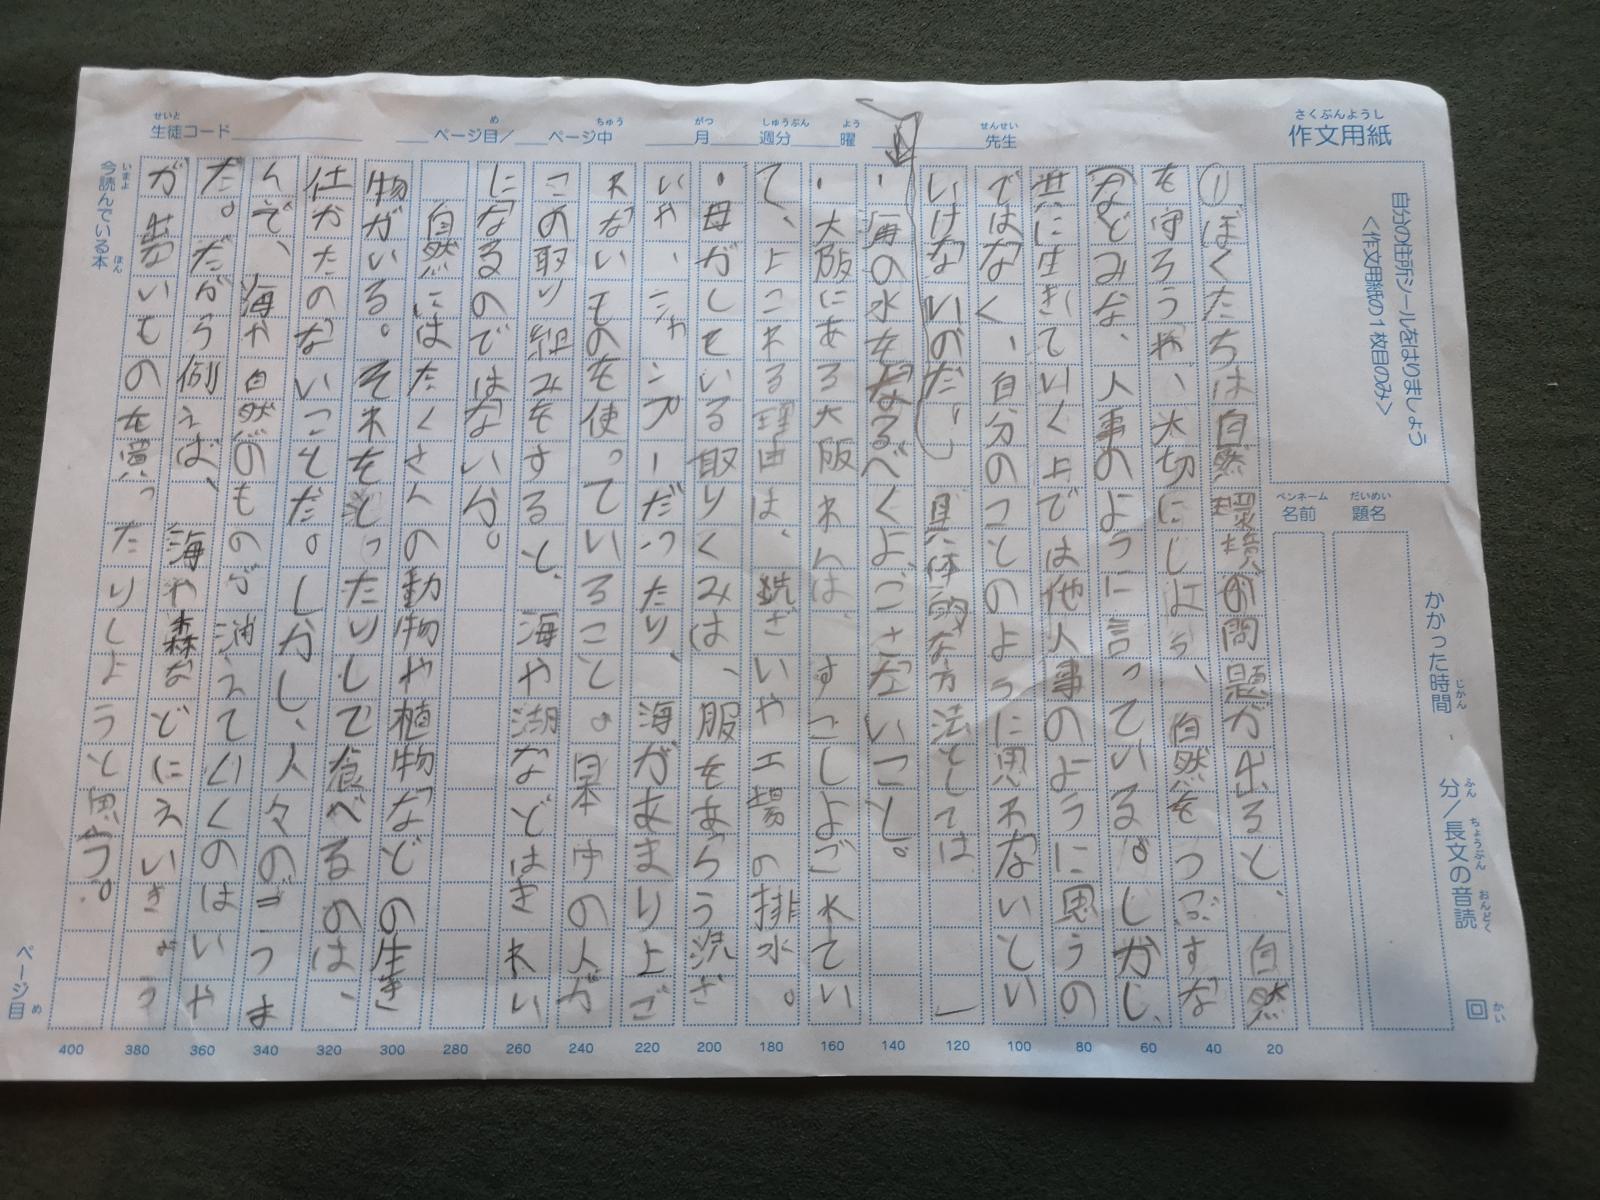 作文用紙
さくぶんようし
自分の住所シールをはりましょう
<作文用紙の1枚目のみ>
ペンネーム
名前
だいめい
題名
かかった時間
じかん
分/長文の音読
ふん
ちょうぶん
おんどく
回
かい
せいと
生徒コード
ページ目/
め
ページ中
ちゅう
月
がつ
週分
しゅうぶん
曜
よう
先生
せんせい
①ぼくたちは自然環境の問題が出ると、自然
を守ろうや、大切にしよう、自然をつぶすな
などみな、人事のように言っている。しかし、
共に生きていく上では他人事のように思うの
ではなく、自分のことのように思わないとい
いけないのだ。具体的な方法としては
・海の水をなるべくよごさないこと。
・大阪にある大阪わんは、すごしよごれてい
て、よごれる理由は、洗ざいや工場の排水。
・母がしている取りくみは、服をあらう洗ざ
いや、シャンプーだったり、海があまり上ご
れないものを使っていること。日本中の人が
この取り組みをすると、海や湖などはきれい
になるのではないか。
自然にはたくさんの動物や植物などの生き
物がいる。それをとったりして食べるのは、
仕かたのないことだ。しかし、人々のごうま
んで、海や自然のものが消えていくのはいや
だ。だから例えば、海や森などにえいきょう
が出ないものを買ったりしようと思う。
今読んでいる本
いまよ
ほん
ページ目
め
20
40
60
80
100
120
140
160
180
200
220
240
260
280
300
320
340
360
380
400